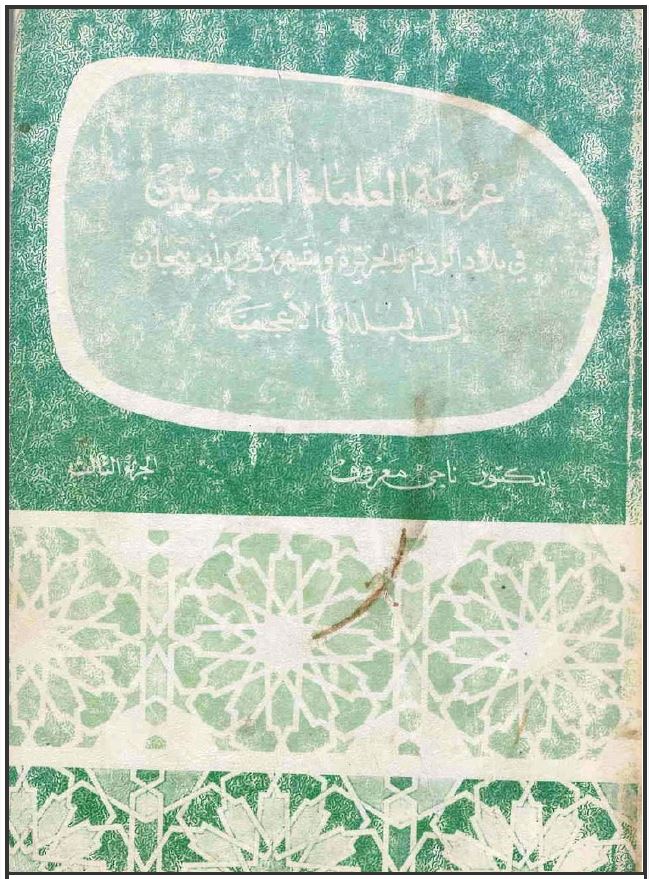 عروبة العلماء المنسوبين
في بلاد الروم والجزيرة وشهرزور وأذربيجان
إلى البلدان الأعجمية
الدكتور ناجي معروف
الجزء الثالث